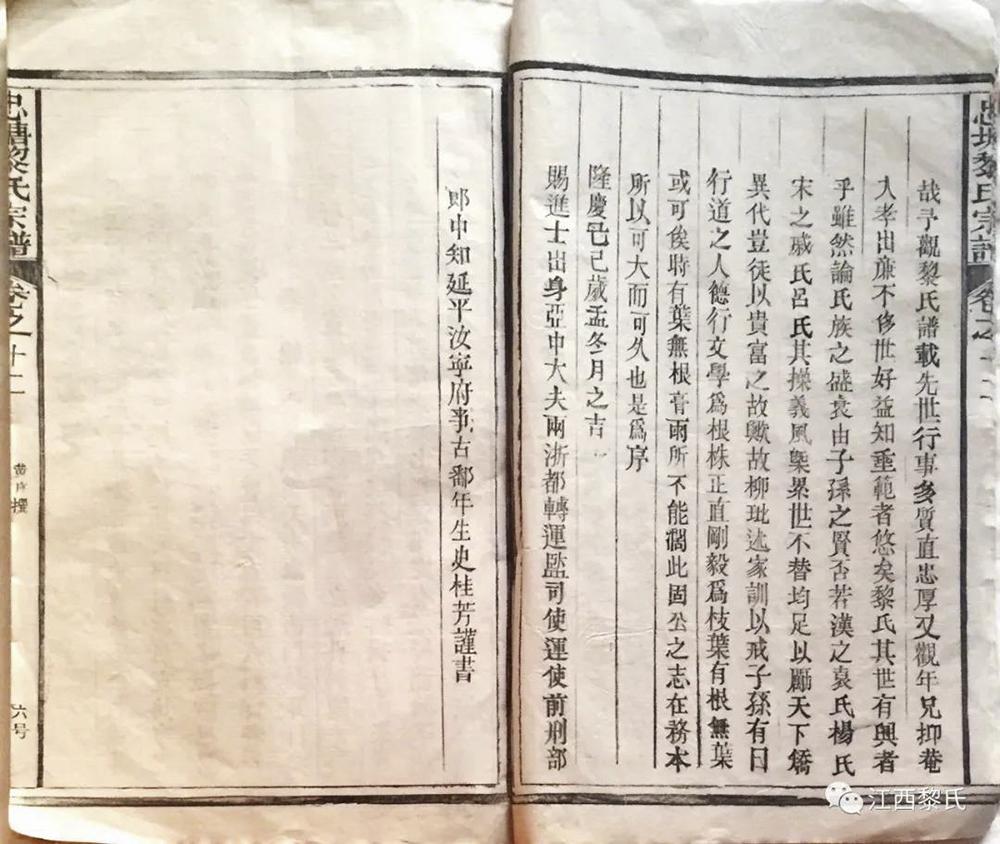 哉予觀黎氏譜載先世行事多質直忠厚又觀年兄抑菴
入孝出廉不侈世好益知垂範者悠矣黎氏其世有興者
乎雖然論氏族之盛衰由子孫之賢否若漢之袁氏楊氏
宋之戚氏呂氏其操義風槩累世不替均足以勵天下矯
異代豈徒以貴富之故歟故柳玭述家訓以戒子孫有曰
行道之人德行文學爲根株正直剛毅爲枝葉有根無葉
或可俟時有葉無根膏雨所不能濶此固公之志在務本
所以可大而可久也是爲序
隆慶己巳歲孟冬月之吉
賜進士出身亞中大夫兩浙都轉運監司使運使前刑部
郎中知延平汝寧府事古鄱年生史桂芳謹書
忠塘黎氏宗譜 卷之十二
黄序撰
六号
忠塘黎氏宗譜 卷之
江西黎氏